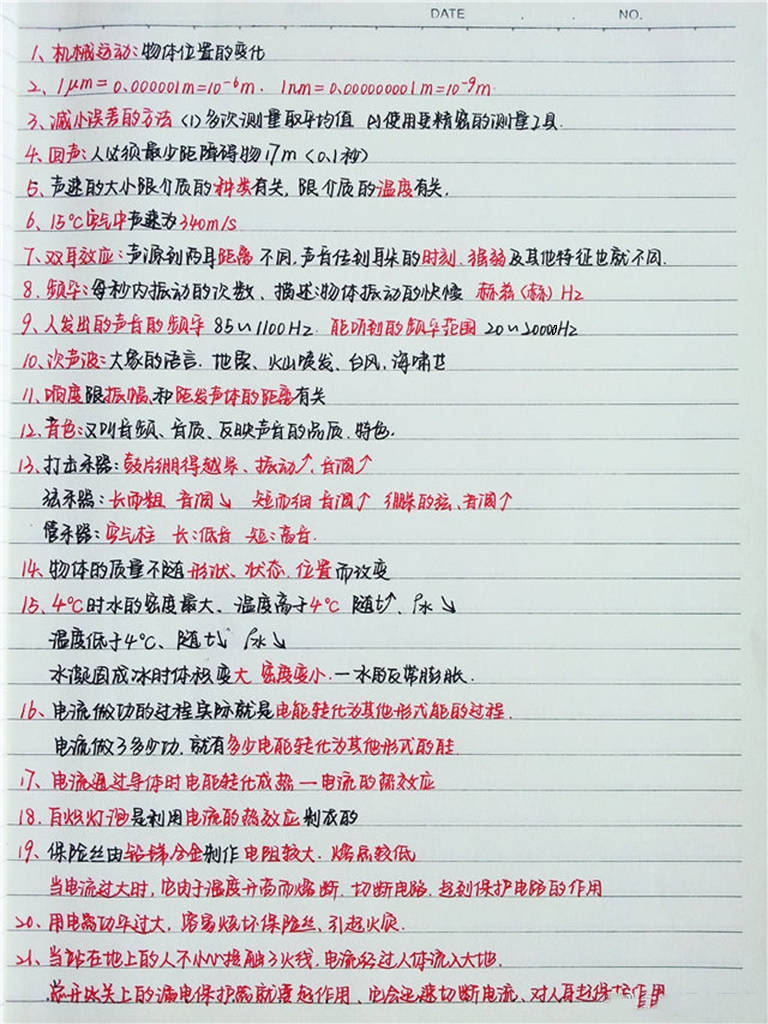 DATE . . NO.
1、机械运动：物体位置的变化
2、1μm=0.000001m=10⁻⁶m. 1nm=0.000000001m=10⁻⁹m
3、减小误差的方法 (1)多次测量取平均值 (2)使用更精密的测量工具.
4、回声：人必须最少距障碍物17m (0.1秒)
5、声速的大小跟介质的种类有关，跟介质的温度有关.
6、15℃空气中声速为340m/s
7、双耳效应：声源到两耳距离不同，声音传到耳朵的时刻、强弱及其他特征也就不同.
8、频率：每秒内振动的次数、描述物体振动的快慢 赫兹(赫) Hz
9、人发出的声音的频率 85~1100Hz. 能听到的频率范围 20~20000Hz
10、次声波：大象的语言. 地震、火山喷发、台风、海啸
11、响度跟振幅、和距发声体的距离有关
12、音色：又叫音频、音质、反映声音的品质、特色.
13、打击乐器：鼓片绷得越紧、振动↑、音调↑
弦乐器：长而粗 音调↘ 短而细 音调↑ 绷紧的弦、音调↑
管乐器：空气柱 长：低音 短：高音.
14、物体的质量不随形状、状态、位置而改变
15、4℃时水的密度最大、温度高于4℃ 随t↑、ρ水↘
温度低于4℃、随t↘ ρ水↘
水凝固成冰时体积变大 密度变小.—水的反常膨胀.
16、电流做功的过程实际就是电能转化为其他形式能的过程.
电流做了多少功、就有多少电能转化为其他形式的能.
17、电流通过导体时电能转化成热—电流的热效应
18、白炽灯泡是利用电流的热效应制成的
19、保险丝由铅锑合金制作 电阻较大. 熔点较低
当电流过大时，它由于温度升高而熔断. 切断电路. 起到保护电路的作用
20、用电器功率过大，容易烧坏保险丝、引起火灾.
21、当站在地上的人不小心接触了火线、电流经过人体流入大地.
总开关上的漏电保护器就要起作用、它会迅速切断电流、对人身起保护作用